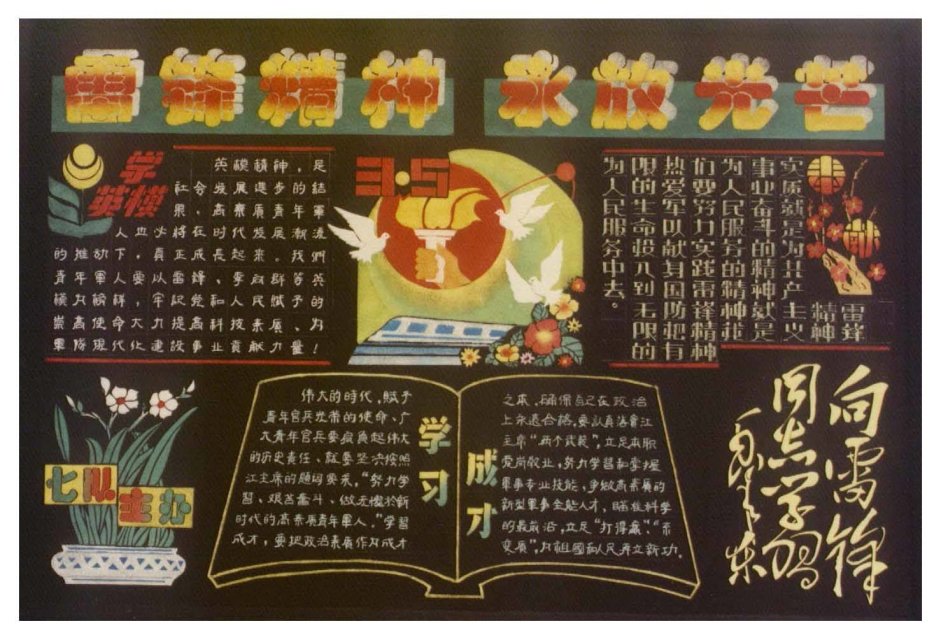 雷锋精神 永放光芒
学
英模
英模精神,是
社会发展進步的結
果、高素质青年軍
人也必将在时代发展潮流
的推动下,真正成長起来。我們
青年軍人要以雷锋、李向群等英
模为榜样,牢記党和人民赋予的
崇高使命大力提高科技素质、为
軍隊现代化建設事业貢献力量!
3·5
奉献
雷锋
精神
实质就是为共产主义
事业奋斗的精神就是
为人民服务的精神我
们要努力实践雷锋精神
热爱军队献身国防把有
限的生命投入到无限的
为人民服务中去。
七队
主办
学习
伟大的时代,赋予
青年官兵光荣的使命、广
大青年官兵要肩负起伟大
的历史责任、就要坚决按照
江主席的题词要求,“努力学
習、艰苦奮斗、做无愧於新
时代的高素质青年軍人。”学習
成才,要把政治素质作为成才
成才
之本,确保自己在政治
上永远合格,要认真落實江
主席“两个武装”,立足本职
爱岗敬业,努力学習和掌握
軍事专业技能,争做高素质的
新型軍事全能人才,瞄准科学
的最前沿,立足“打得赢”“不
变质”,为祖國和人民再立新功。
向雷锋
同志学習
毛泽东